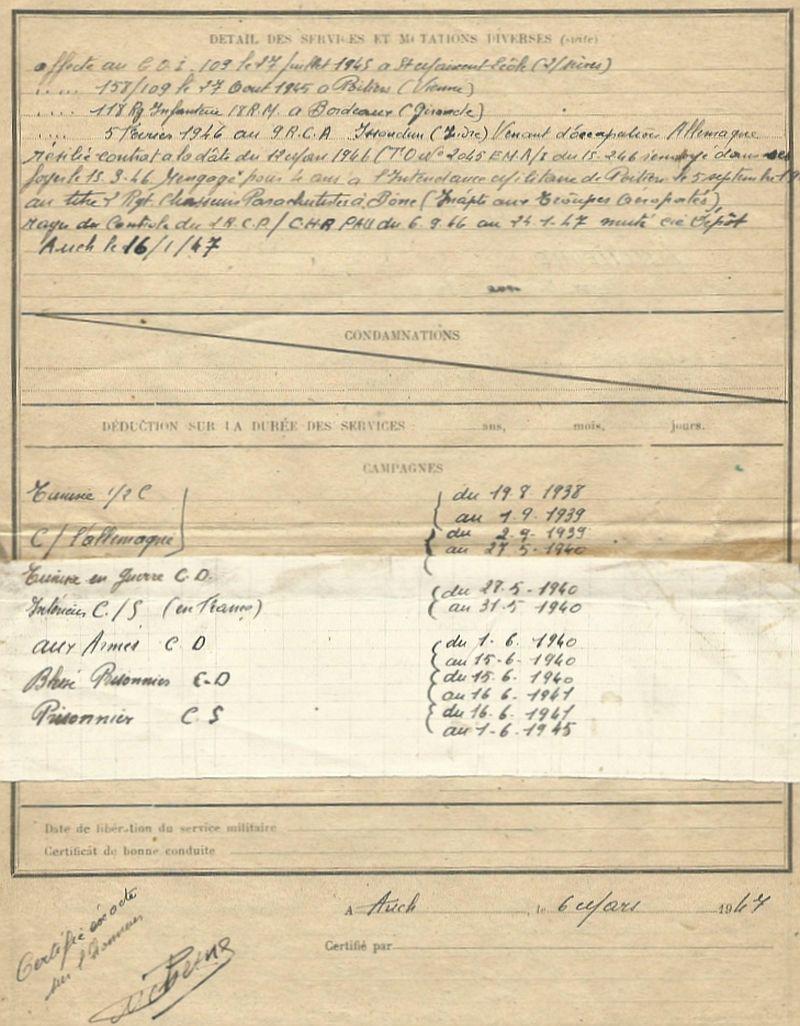 DÉTAIL DES SERVICES ET MUTATIONS DIVERSES (suite)
affecté au C.O.I. 109 le 27 juillet 1945 a St Maixent l'école (2/Sèvres)
..... 158/109 le 27 Aout 1945 a Poitiers (Vienne)
.... 118 Rg Infanterie 18 R.M. a Bordeaux (Gironde)
.... 5 Février 1946 au 9 R.C.A Issoudun (Indre) Venant d'occupation Allemagne
résilié contrat a la date du 1946 (T.O No 2045 E.M.A/S du 15.2.46 renvoyé dans ses
foyers le 15.3.46 Rengagé pour 4 ans a l'Intendance Militaire de Poitiers le 5 septembre
au titre Rgt Chasseurs Parachutistes à Bône (Inapte aux Troupes Aeroportés)
rayé du Controle du 1 R.C.P / C.H.R PAU du 6.9.46 au 24.1.47 muté Dépôt
Auch le 16/1/47
CONDAMNATIONS
DÉDUCTION SUR LA DURÉE DES SERVICES : ans, mois, jours.
CAMPAGNES
Tunisie 1/2 C du 19.8.1938
au 1.9.1939
C/ l'allemagne du 2.9.1939
au 27.5.1940
Tunisie en guerre C.D.
du 27.5.1940
Intérieur C./S (en France) au 31.5.1940
aux Armés C D du 1.6.1940
au 15.6.1940
Blessé Prisonnier C.D du 15.6.1940
au 16.6.1941
Prisonnier C.S du 16.6.1941
au 1.6.1945
Date de libération du service militaire
Certificat de bonne conduite
A Auch, le 6 Mars 1947
Certifié par
Certifié exacte
sur l'honneur